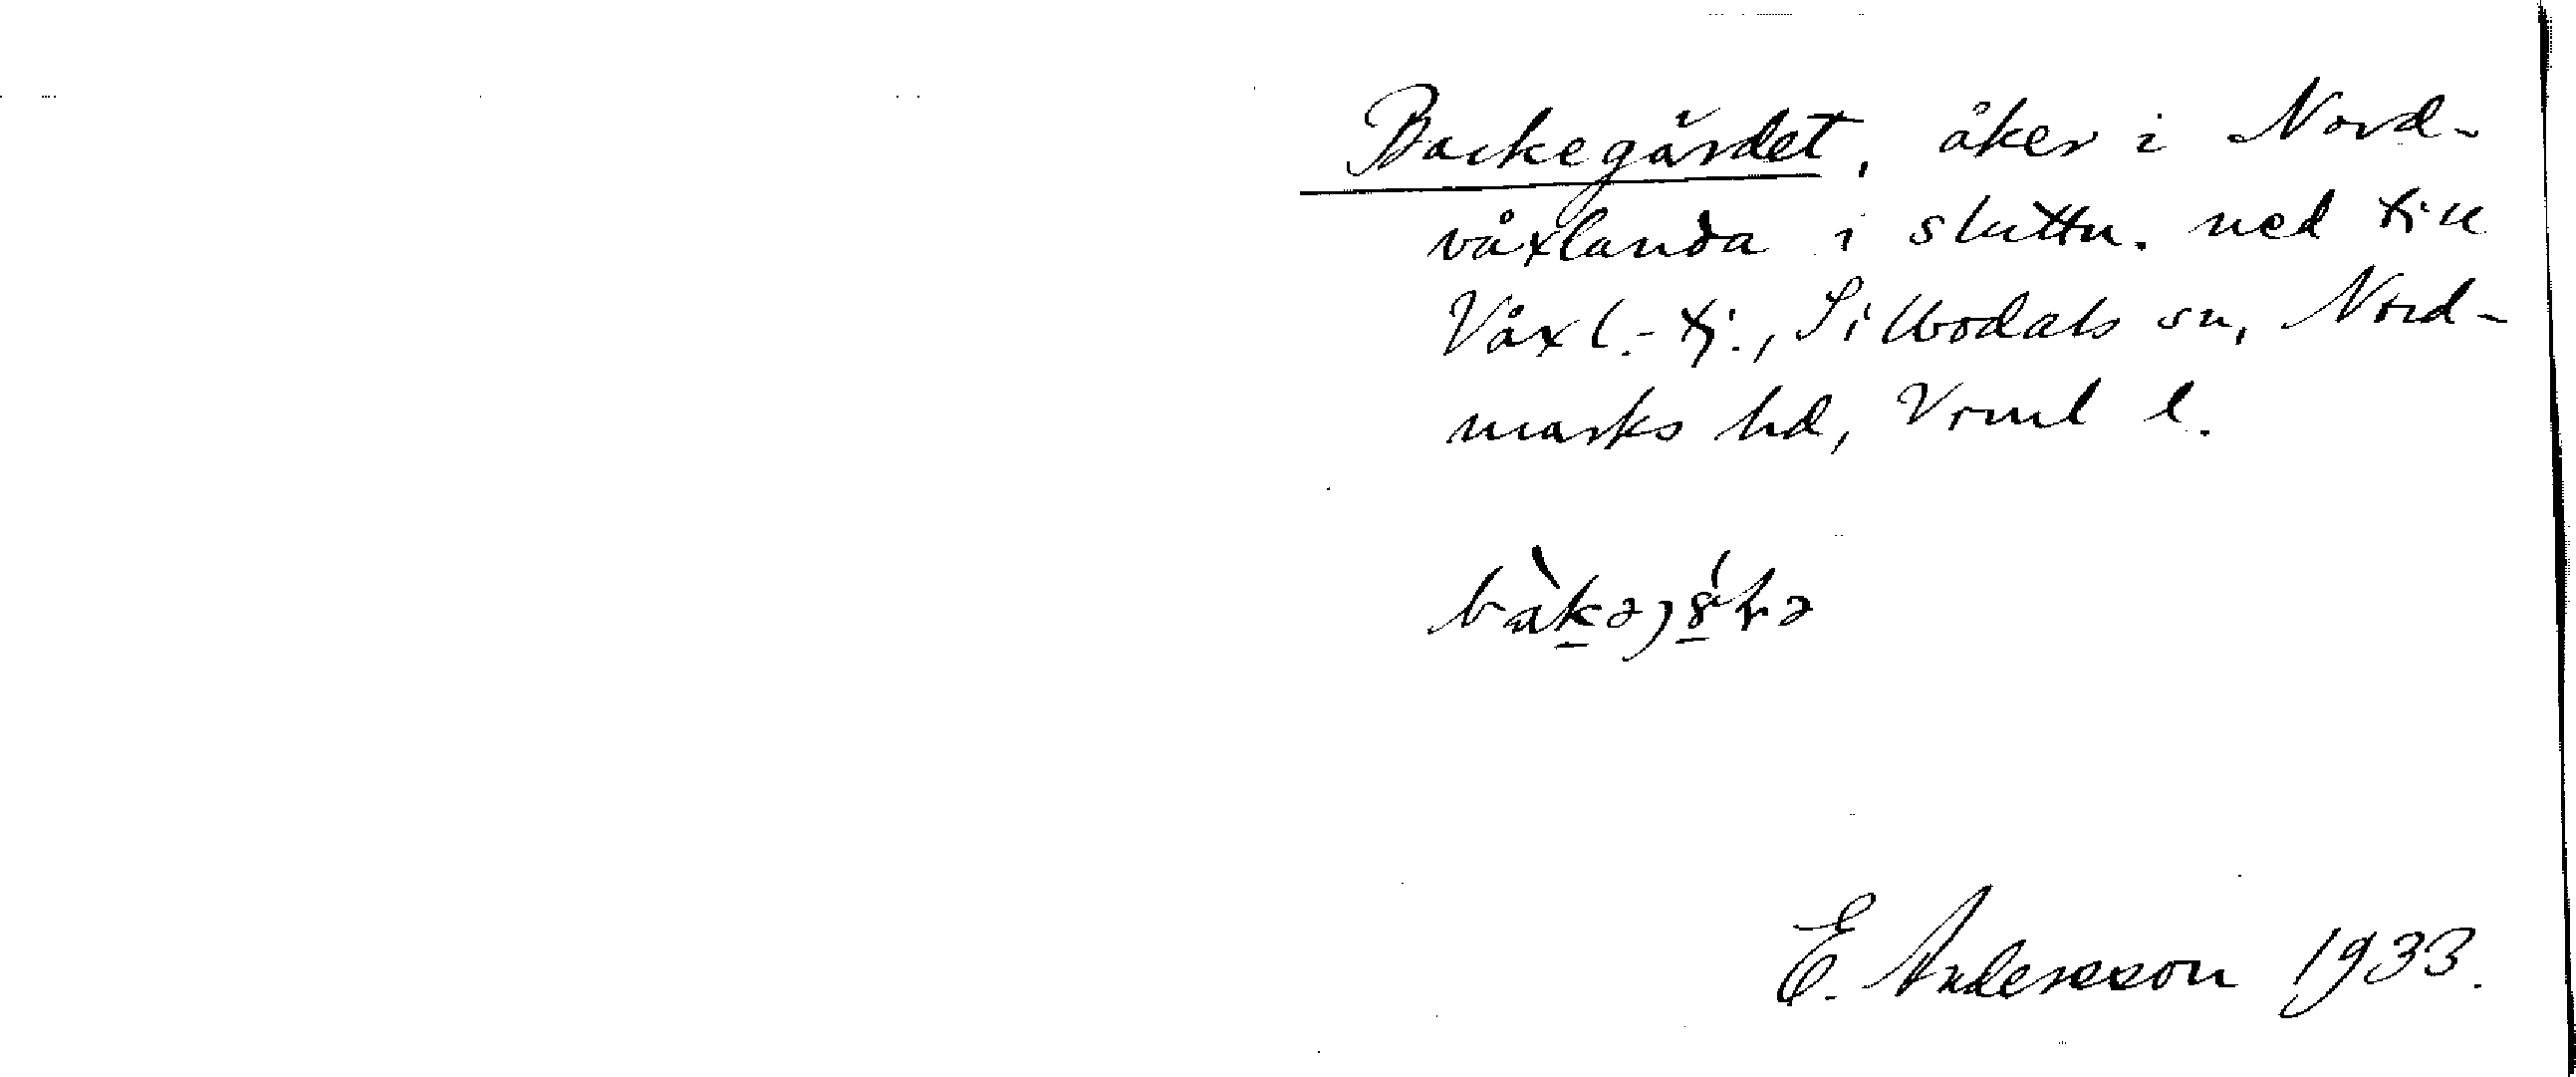 Backegärdet, åker i Nord-
våxlanda i sluttn. ned till
Våxl.-tj., Silbodals sn, Nord-
marks hd, Vrml l.
E. Andersson 1933.